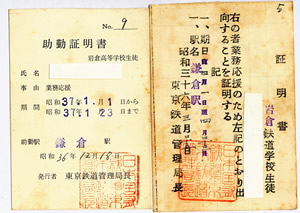 No. 9
助勤証明書
岩倉高等学校生徒
氏名
事由 業務応援
期間 昭和37年1月1日から
昭和37年1月23日まで
助勤駅 鎌倉駅
昭和36年12月18日
発行者 東京鉄道管理局長
5
証明書
岩倉鉄道学校生徒
右の者業務応援のため左記のとおり出
向することを証明する
記
一、期日
一、駅名 鎌倉駅
昭和三十六年三月
東京鉄道管理局長